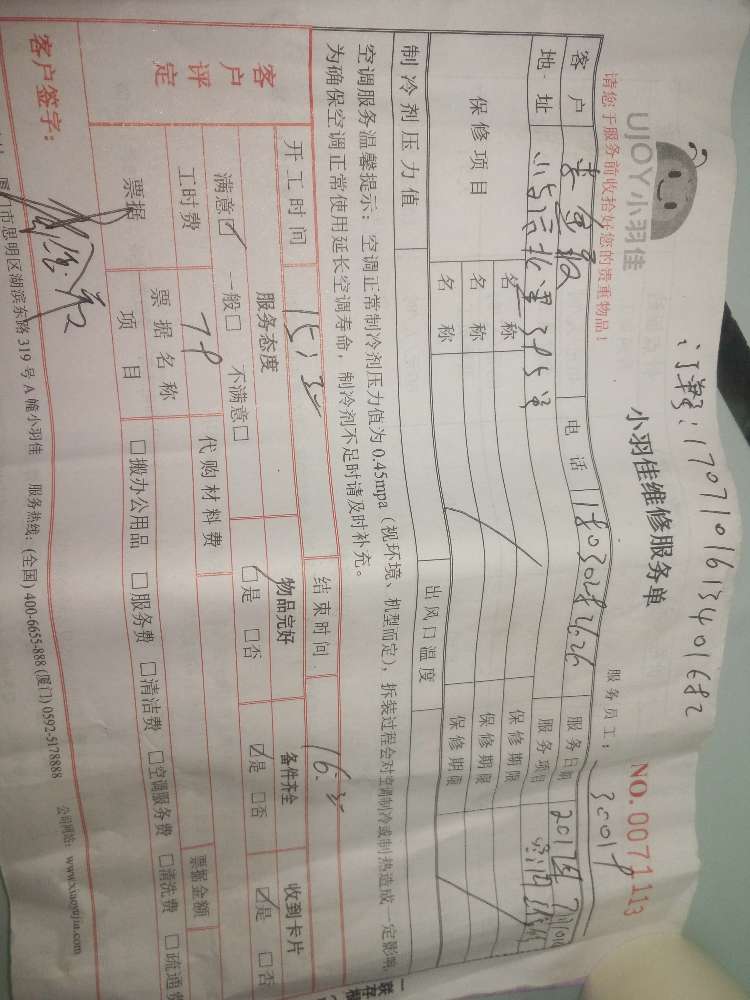 订单号:170710161340168₂
UJOY小羽佳
小羽佳维修服务单
NO.0071113
请您于服务前收拾好您的贵重物品!
服务员工:
客户
电话
服务日期 2017年7月10
地址
服务项目
保修项目
名称 保修期限
名称 保修期限
名称 保修期限
制冷剂压力值
出风口温度
空调服务温馨提示:空调正常制冷剂压力值为0.45mpa(视环境、机型而定),拆装过程会对空调制冷或制热造成一定影响
为确保空调正常使用延长空调寿命,制冷剂不足时请及时补充。
客户评定
开工时间 15:
结束时间 16:
服务态度 物品完好 备件齐全 收到卡片
满意☑ 一般□ 不满意□ ☑是 □否 ☑是 □否 ☑是 □否
工时费 78 代购材料费
票据 票据名称 票据金额
项目 □搬办公用品 □服务费 □清洁费 □空调服务费 □清洗费 □疏通费
客户签字:
门市思明区湖滨东路319号A幢小羽佳 服务热线:(全国)400-6655-888(厦门)0592-5178888 公司网站:www.xiaoyujia.com